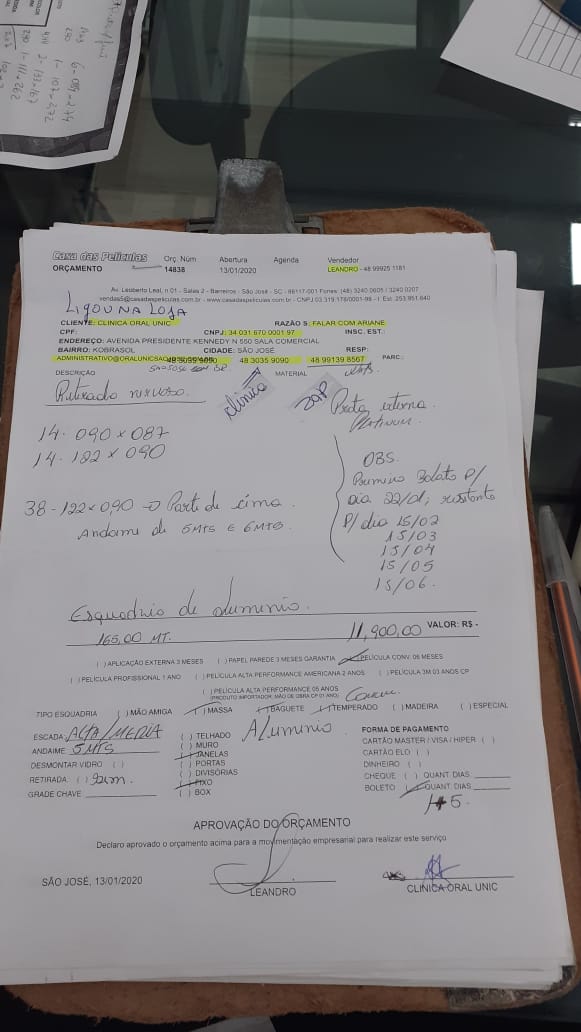 Casa das Películas
Orç. Núm Abertura Agenda Vendedor
ORÇAMENTO 14838 13/01/2020 LEANDRO - 48 99925 1181
Av. Leoberto Leal, n 01 - Salas 2 - Barreiros - São José - SC - 88117-001 Fones: (48) 3240 0605 / 3240 0207
vendas5@casadaspeliculas.com.br - www.casadaspeliculas.com.br - CNPJ 03.319.178/0001-98 - I. Est: 253.951.640
LIGOU NA LOJA
CLIENTE: CLINICA ORAL UNIC RAZÃO S: FALAR COM ARIANE
CPF: CNPJ: 34 031 670 0001 97 INSC. EST.:
ENDEREÇO: AVENIDA PRESIDENTE KENNEDY N 550 SALA COMERCIAL
BAIRRO: KOBRASOL CIDADE: SÃO JOSÉ RESP:
48 3035 9090 48 3035 9090 48 99139 8567 PARC:
DESCRIÇÃO MATERIAL
clínica
Retirado Preto interno
PLATINUM.
14 - 090 x 087
14 - 122 x 090
OBS.
Primeiro Boleto P/
Dia 22/01, restante
P/ dia 15/02
15/03
15/04
15/05
15/06.
38 - 122 x 090 → Parte de cima.
Andaime de 5MTS E 6MTS.
Esquadria de aluminio.
165,00 MT. 11,900,00 VALOR: R$ -
( ) APLICAÇÃO EXTERNA 3 MESES ( ) PAPEL PAREDE 3 MESES GARANTIA ( ) PELÍCULA CONV. 06 MESES
( ) PELÍCULA PROFISSIONAL 1 ANO ( ) PELÍCULA ALTA PERFORMANCE AMERICANA 2 ANOS ( ) PELÍCULA 3M 03 ANOS CP
( ) PELÍCULA ALTA PERFORMANCE 05 ANOS
(PRODUTO IMPORTADOR, MÃO DE OBRA CP 01 ANO)
TIPO ESQUADRIA ( ) MÃO AMIGA ( ) MASSA ( ) BAGUETE ( ) TEMPERADO ( ) MADEIRA ( ) ESPECIAL
Aluminio
ESCADA: ALTA/MEDIA ( ) TELHADO FORMA DE PAGAMENTO
ANDAIME 5 MTS ( ) MURO CARTÃO MASTER / VISA / HIPER ( )
( ) JANELAS CARTÃO ELO ( )
DESMONTAR VIDRO ( ) ( ) PORTAS DINHEIRO ( )
RETIRADA: ( ) ( ) DIVISÓRIAS CHEQUE ( ) QUANT. DIAS
GRADE CHAVE ( ) FIXO BOLETO ( ) QUANT. DIAS
( ) BOX 1+5.
APROVAÇÃO DO ORÇAMENTO
Declaro aprovado o orçamento acima para a movimentação empresarial para realizar este serviço
SÃO JOSÉ, 13/01/2020
LEANDRO CLINICA ORAL UNIC